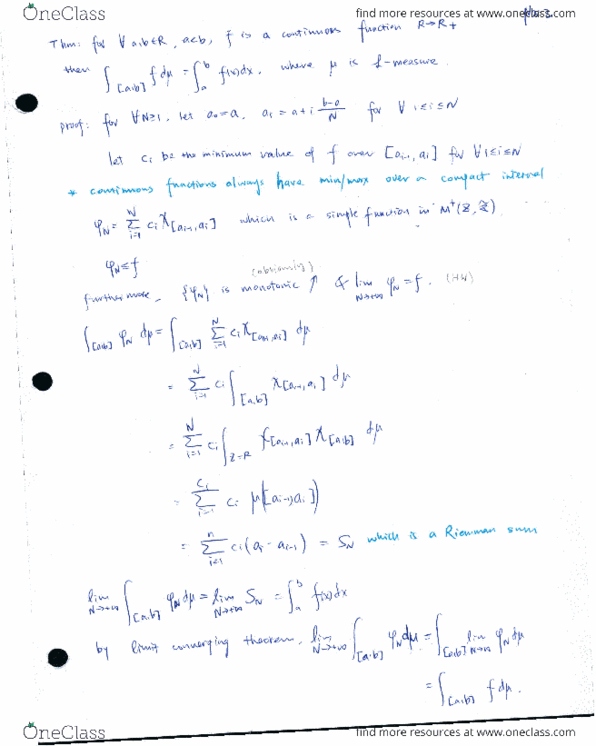 OneClass
find more resources at www.oneclass.com
Thm: for ∀ a,b∈R, a<b, f is a continuous function R→R+
then ∫[a,b] f dμ = ∫_a^b f(x)dx, where μ is ℓ-measure.
proof: for ∀N≥1, let a₀=a, aᵢ=a+i (b-a)/N for ∀ 1≤i≤N
let cᵢ be the minimum value of f over [aᵢ₋₁, aᵢ] for ∀ 1≤i≤N
* continuous functions always have min/max over a compact interval
φ_N = Σ_{i=1}^N cᵢ χ[aᵢ₋₁, aᵢ] which is a simple function in M⁺(Z, 𝓩)
φ_N ≤ f
(obviously)
furthermore, {φ_N} is monotonic ↑ & lim_{N→+∞} φ_N = f. (HW)
∫[a,b] φ_N dμ = ∫[a,b] Σ_{i=1}^N cᵢ χ[aᵢ₋₁, aᵢ] dμ
= Σ_{i=1}^N cᵢ ∫[a,b] χ[aᵢ₋₁, aᵢ] dμ
= Σ_{i=1}^N cᵢ ∫_{Z=R} χ[aᵢ₋₁, aᵢ] χ[a,b] dμ
= Σ_{i=1} cᵢ μ([aᵢ₋₁, aᵢ])
= Σ_{i=1}^n cᵢ (aᵢ - aᵢ₋₁) = S_N which is a Riemman sum
lim_{N→+∞} ∫[a,b] φ_N dμ = lim_{N→+∞} S_N = ∫_a^b f(x)dx
by limit converging theorem, lim_{N→+∞} ∫[a,b] φ_N dμ = ∫[a,b] lim_{N→∞} φ_N dμ
= ∫[a,b] f dμ.
OneClass
find more resources at www.oneclass.com